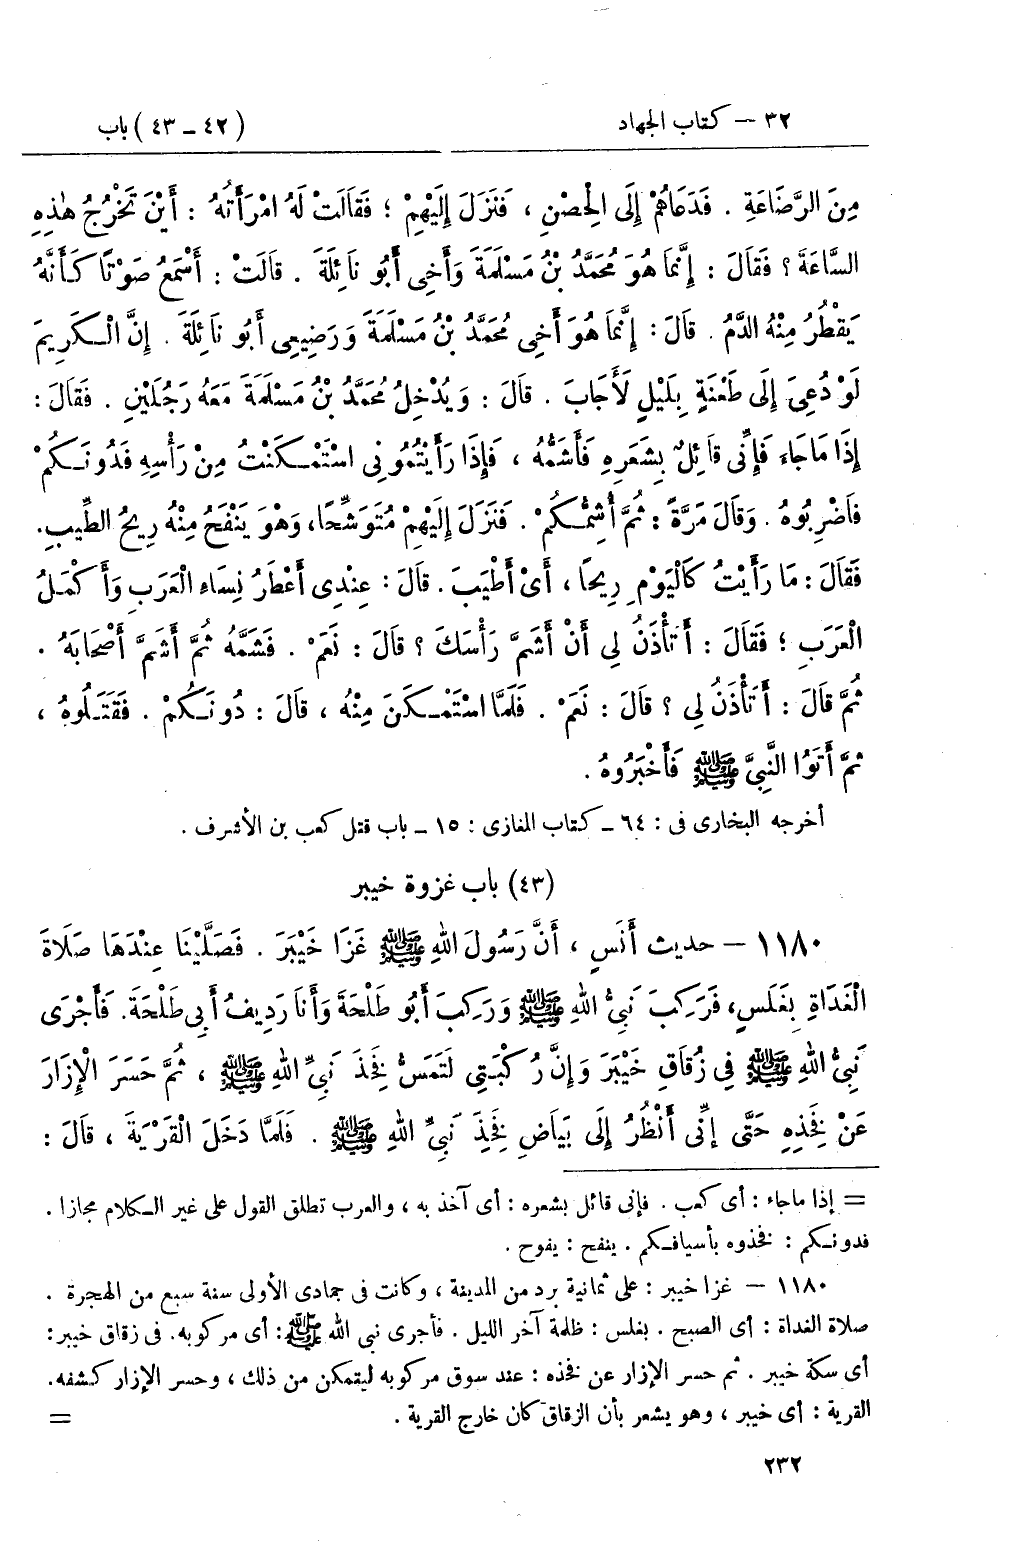 ٣٢ – كتاب الجهاد (٤٢ – ٤٣) باب
مِنَ الرَّضَاعَةِ . فَدَعَاهُمْ إِلَى الْحِصْنِ ، فَنَزَلَ إِلَيْهِمْ ؛ فَقَالَتْ لَهُ امْرَأَتُهُ : أَيْنَ تَخْرُجُ هٰذِهِ
السَّاعَةَ ؟ فَقَالَ : إِنَّمَا هُوَ مُحَمَّدُ بْنُ مَسْلَمَةَ وَأَخِى أَبُو نَائِلَةَ . قَالَتْ : أَسْمَعُ صَوْتًا كَأَنَّهُ
يَقْطُرُ مِنْهُ الدَّمُ . قَالَ : إِنَّمَا هُوَ أَخِى مُحَمَّدُ بْنُ مَسْلَمَةَ وَرَضِيعِى أَبُو نَائِلَةَ . إِنَّ الْكَرِيمَ
لَوْ دُعِىَ إِلَى طَعْنَةٍ بِلَيْلٍ لَأَجَابَ . قَالَ : وَيُدْخِلُ مُحَمَّدُ بْنُ مَسْلَمَةَ مَعَهُ رَجُلَيْنِ . فَقَالَ :
إِذَا مَاجَاءَ فَإِنِّى قَائِلٌ بِشَعَرِهِ فَأَشَمُّهُ ، فَإِذَا رَأَيْتُمُونِى اسْتَمْكَنْتُ مِنْ رَأْسِهِ فَدُونَكُمْ
فَاضْرِبُوهُ . وَقَالَ مَرَّةً : ثُمَّ أُشِمُّكُمْ . فَنَزَلَ إِلَيْهِمْ مُتَوَشِّحًا، وَهُوَ يَنْفَحُ مِنْهُ رِيحُ الطِّيبِ.
فَقَالَ : مَا رَأَيْتُ كَالْيَوْمِ رِيحًا ، أَىْ أَطْيَبَ . قَالَ : عِنْدِى أَعْطَرُ نِسَاءِ الْعَرَبِ وَأَكْمَلُ
الْعَرَبِ ؛ فَقَالَ : أَتَأْذَنُ لِى أَنْ أَشَمَّ رَأْسَكَ ؟ قَالَ : نَعَمْ . فَشَمَّهُ ثُمَّ أَشَمَّ أَصْحَابَهُ .
ثُمَّ قَالَ : أَتَأْذَنُ لِى ؟ قَالَ : نَعَمْ . فَلَمَّا اسْتَمْكَنَ مِنْهُ ، قَالَ : دُونَكُمْ . فَقَتَلُوهُ ،
ثمَّ أَتَوُا النَّبِيَّ ﷺ فَأَخْبَرُوهُ .
أخرجه البخارى فى : ٦٤ – كتاب المغازى : ١٥ – باب قتل كعب بن الأشرف .
(٤٣) باب غزوة خيبر
١١٨٠ – حديث أَنَسٍ ، أَنَّ رَسُولَ اللهِ ﷺ غَزَا خَيْبَرَ . فَصَلَّيْنَا عِنْدَهَا صَلَاةَ
الْغَدَاةِ بِغَلَسٍ، فَرَكِبَ نَبِىُّ اللهِ ﷺ وَرَكِبَ أَبُو طَلْحَةَ وَأَنَا رَدِيفُ أَبِى طَلْحَةَ. فَأَجْرَى
نَبِىُّ اللهِ ﷺ فِى زُقَاقِ خَيْبَرَ وَإِنَّ رُكْبَتِى لَتَمَسُّ فَخِذَ نَبِىِّ اللهِ ﷺ ، ثُمَّ حَسَرَ الْإِزَارَ
عَنْ فَخِذِهِ حَتَّى إِنِّى أَنْظُرُ إِلَى بَيَاضِ فَخِذِ نَبِىِّ اللهِ ﷺ . فَلَمَّا دَخَلَ الْقَرْيَةَ ، قَالَ :
= إذا ماجاء : أى كعب . فإنى قائل بشعره : أى آخذ به ، والعرب تطلق القول على غير الكلام مجازا .
فدونكم : فخذوه بأسيافكم . ينفح : يفوح .
١١٨٠ – غزا خيبر : على ثمانية برد من المدينة ، وكانت فى جمادى الأولى سنة سبع من الهجرة .
صلاة الغداة : أى الصبح . بغلس : ظلمة آخر الليل . فأجرى نبى الله ﷺ : أى مركوبه. فى زقاق خيبر :
أى سكة خيبر . ثم حسر الإزار عن فخذه : عند سوق مركوبه ليتمكن من ذلك ، وحسر الإزار كشفه.
القرية : أى خيبر ، وهو يشعر بأن الزقاق كان خارج القرية . =
٢٣٢